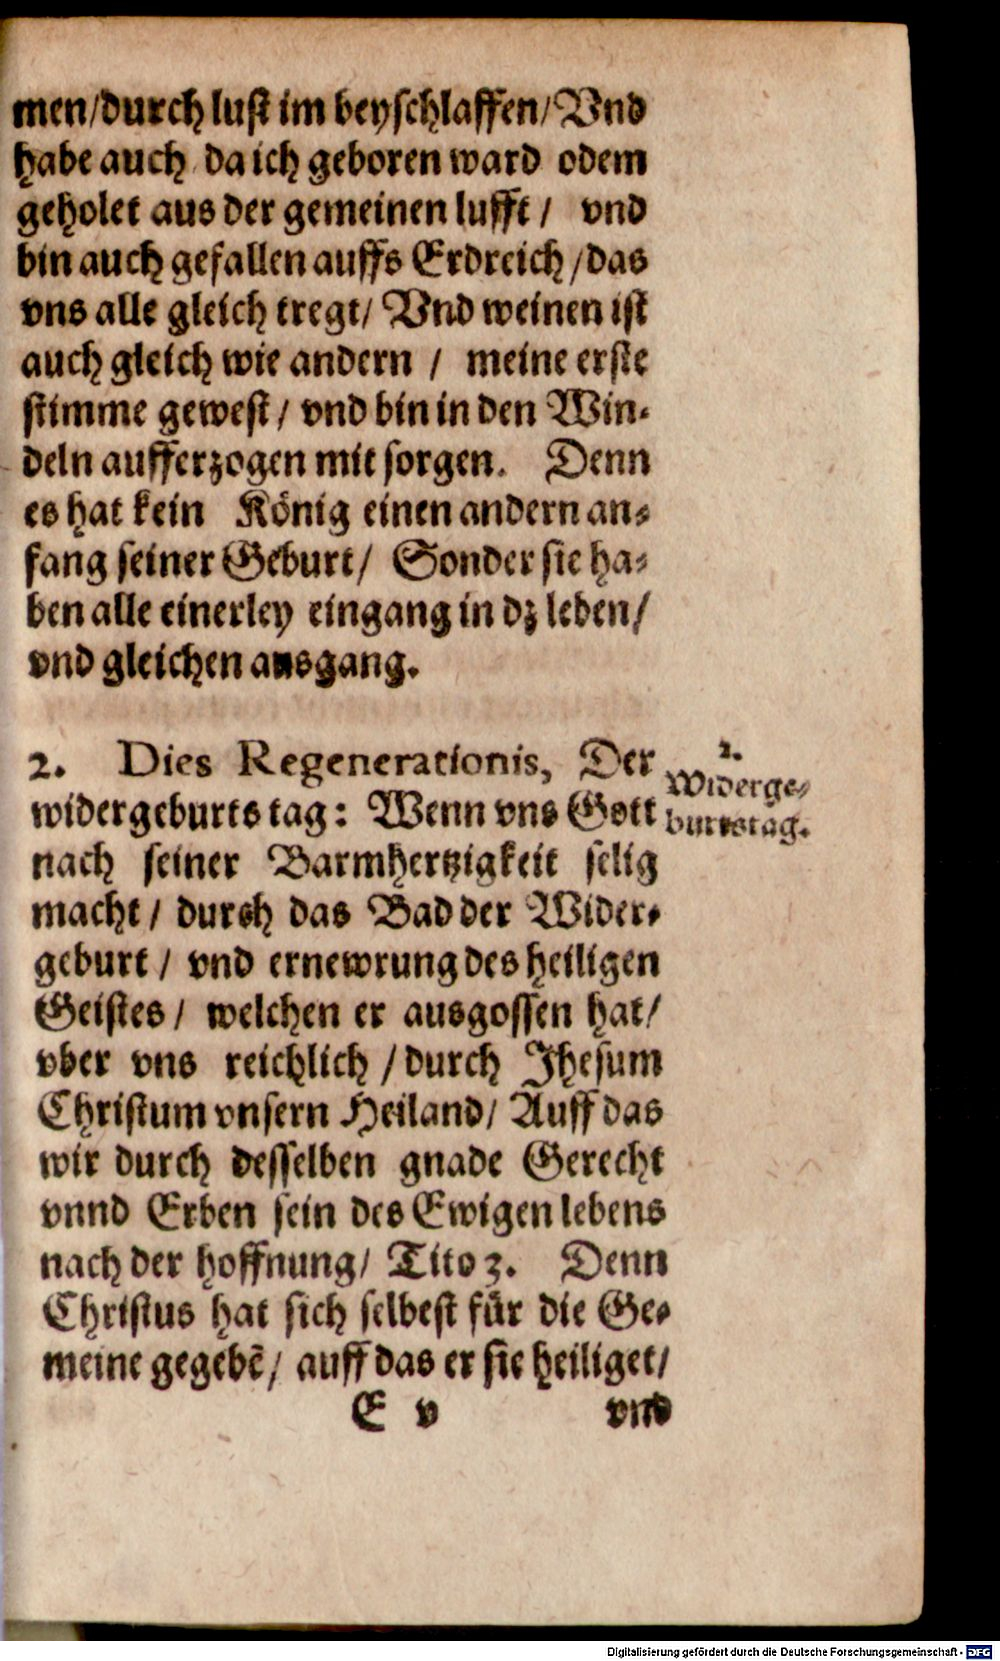 men/durch lust im beyschlaffen/Vnd
habe auch da ich geboren ward odem
geholet aus der gemeinen lufft / vnd
bin auch gefallen auffs Erdreich/das
vns alle gleich tregt/ Vnd weinen ist
auch gleich wie andern / meine erste
stimme gewest/ vnd bin in den Win-
deln aufferzogen mit sorgen. Denn
es hat kein König einen andern an-
fang seiner Geburt/ Sonder sie ha-
ben alle einerley eingang in dz leben/
vnd gleichen ausgang.
2. Dies Regenerationis, Der
widergeburts tag: Wenn vns Gott
nach seiner Barmhertzigkeit selig
macht / dursh das Bad der Wider-
geburt / vnd ernewrung des heiligen
Geistes / welchen er ausgossen hat/
vber vns reichlich / durch Jhesum
Christum vnsern Heiland/ Auff das
wir durch desselben gnade Gerecht
vnnd Erben sein des Ewigen lebens
nach der hoffnung/ Tito 3. Denn
Christus hat sich selbest für die Ge-
meine gegebē/ auff das er sie heiliget/
E v vnd
2.
Widerge-
burtstag.
Digitalisierung gefördert durch die Deutsche Forschungsgemeinschaft - DFG